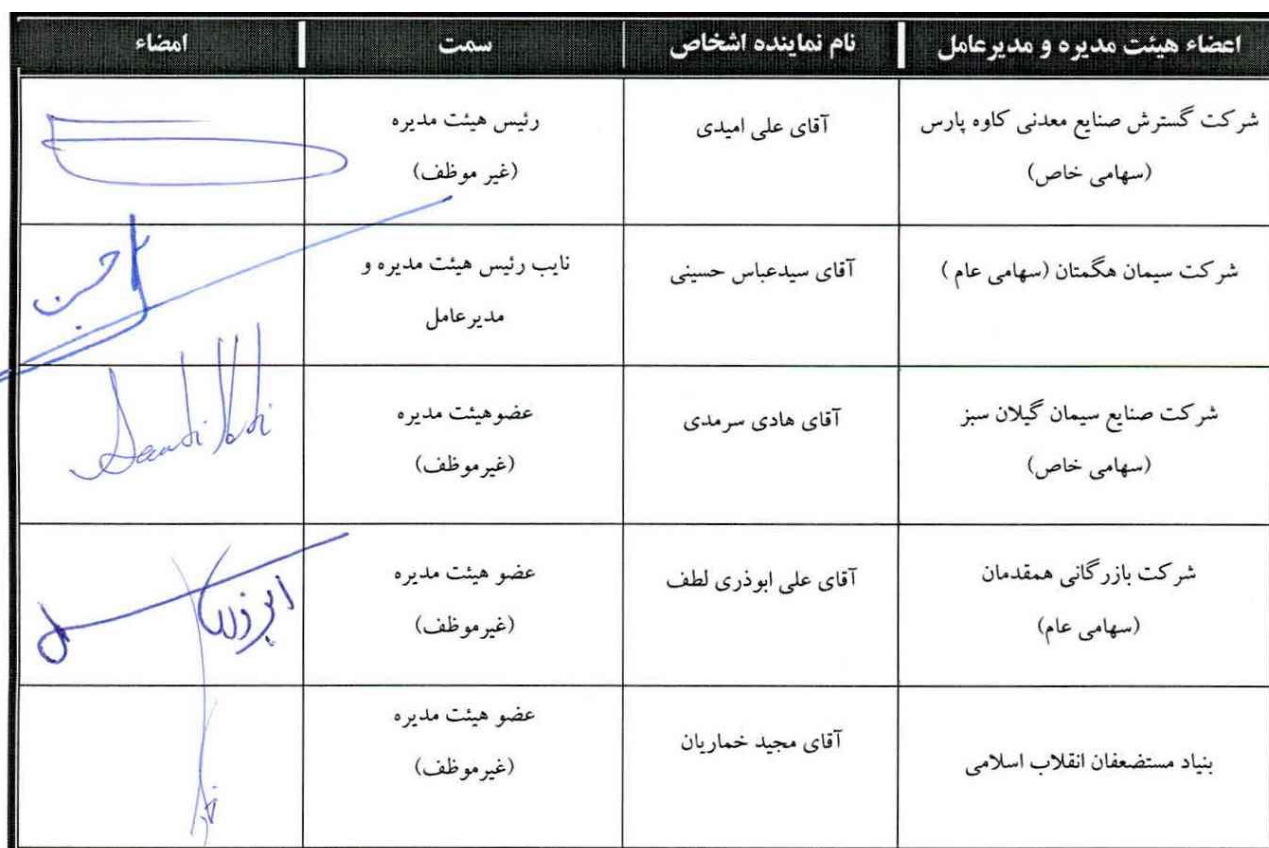 اعضاء هیئت مدیره و مدیرعامل | نام نماینده اشخاص | سمت | امضاء
شرکت گسترش صنایع معدنی کاوه پارس
(سهامی خاص)
آقای علی امیدی
رئیس هیئت مدیره
(غیر موظف)
شرکت سیمان هگمتان (سهامی عام )
آقای سیدعباس حسینی
نایب رئیس هیئت مدیره و
مدیرعامل
شرکت صنایع سیمان گیلان سبز
(سهامی خاص)
آقای هادی سرمدی
عضوهیئت مدیره
(غیرموظف)
شرکت بازرگانی همقدمان
(سهامی عام)
آقای علی ابوذری لطف
عضو هیئت مدیره
(غیرموظف)
بنیاد مستضعفان انقلاب اسلامی
آقای مجید خماریان
عضو هیئت مدیره
(غیرموظف)